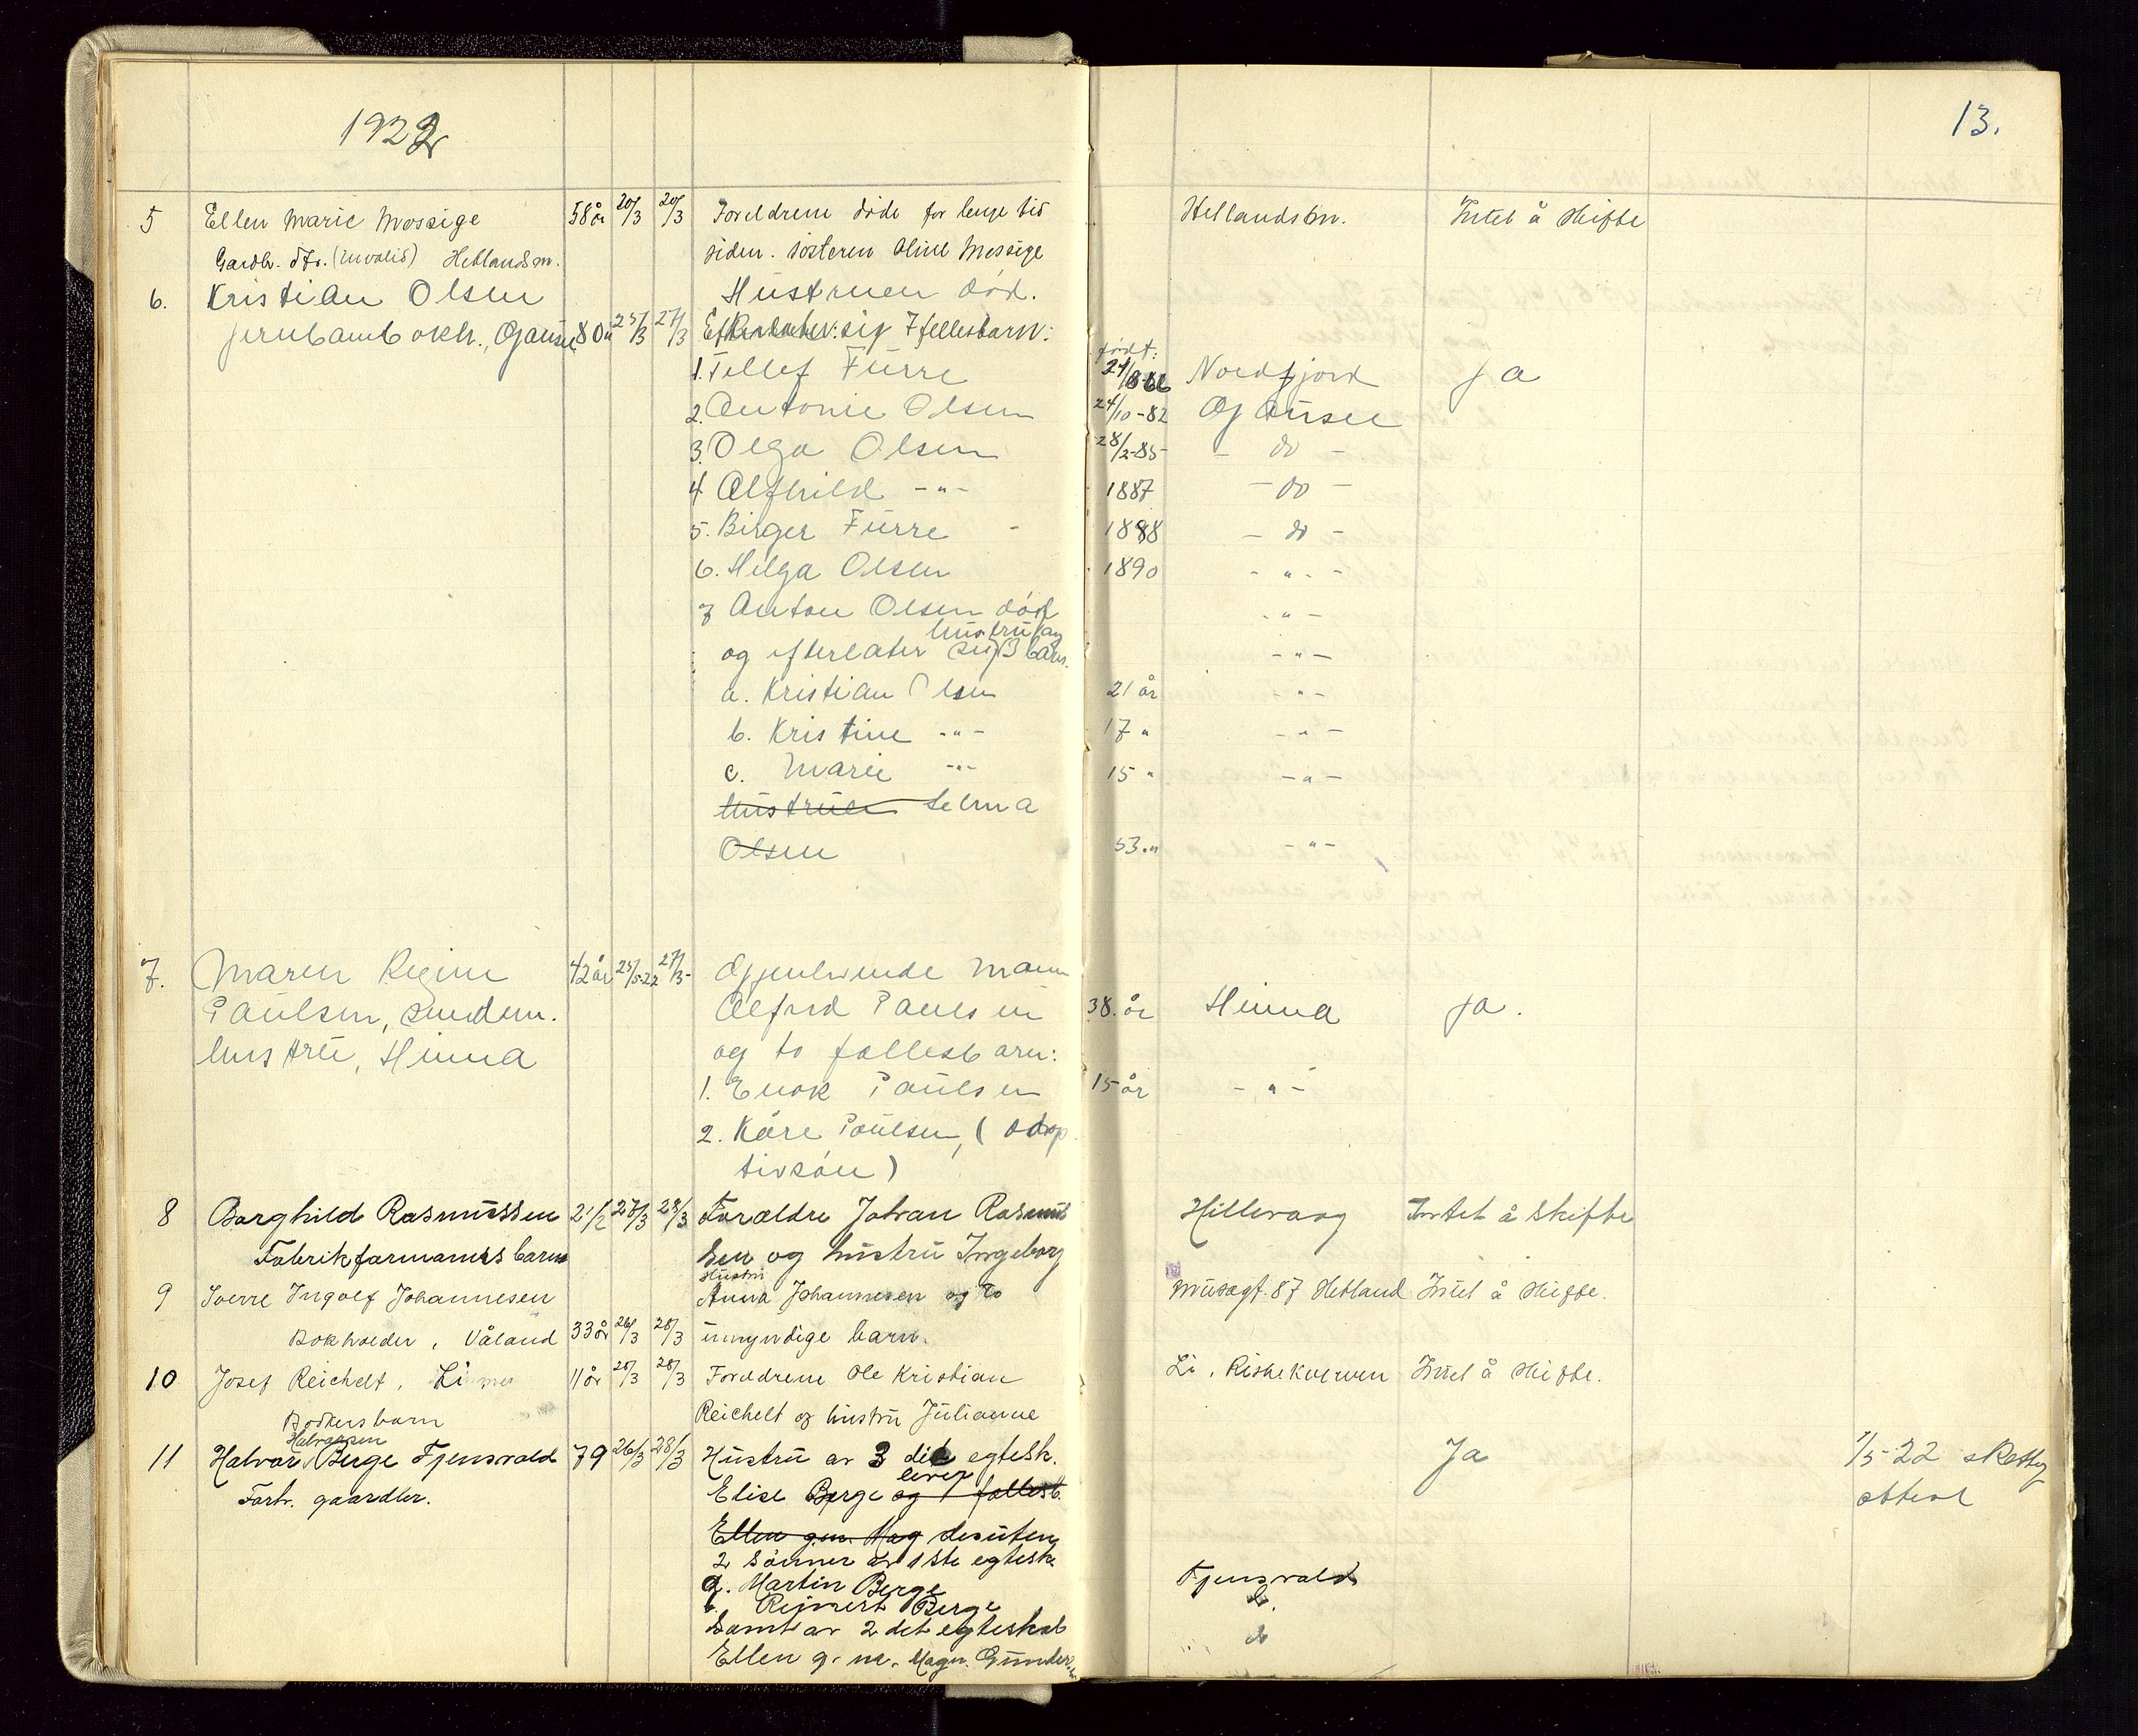 1922
13.
5 Ellen Marie Mossige 58 år 20/3 20/3 Foreldrene döde for lenge tid Hetlandsm. Intet å skifte
Gardbr. dtr. (invalid) Hetlandsm. siden. Sösteren Oline Mossige
6. Kristian Olsen Hustruen död.
Gausel 80 25/3 27/3 Efterlater: sig 7 fellesbarn:
födt:
1. Tellef Furre 24/8 Nordfjord Ja
2. Antonie Olsen 24/10-82 Gausel
3. Olga Olsen 28/2-85 - do -
4 Alfhild -"- 1887 - do -
5. Birger Furre - 1888 - do -
6. Helga Olsen 1890 - " -
7 Anton Olsen död - " -
hustru og
og efterlater sig 3 barn. - " -
a. Kristian Olsen 21 år - " -
b. Kristine -"- 17 " - " -
c. Marie -"- 15 " - " -
hustruen Selma
Olsen 53 " - " -
7. Maren Regine 42 år 25/3-22 27/3- Gjenlevende mann
Paulsen, hustru, Hinna Alfred Paulsen 38. år Hinna Ja.
og to fællesbarn:
1. Enok Paulsen 15 år - " -
2. Kåre Paulsen, (adop
tivsön)
8 Borghild Rasmussen 2 1/2 27/3 28/3 Forældre Johan Rasmus Hillevaag Intet å skifte
Fabrikformannsbarn sen og hustru Ingeborg
Hustru
9 Sverre Ingolf Johannesen Anna Johannesen og to Musegt. 87 Hetland Intet å skifte.
Bokholder, Våland 33 år 26/3 28/3 umyndige barn.
10 Josef Reichelt, Li 11 år 25/3 28/3 Foreldrene Ole Kristian Li, Riskekverven Intet å skifte.
Bödkersbarn Reichelt og hustru Julianne
Halvorsen
11 Halvor Berge Tjensvold 79 26/3 28/3 Hustru av 3 die egtesk. Ja 1/5-22 skatteattest
lever
Forh. gaardbr. Elise Berge og 1 fællesb.
Ellen gm. Mag desuten
2 sönner av 1ste egtesk
a. Martin Berge Tjensvold
b. Reinert Berge do.
Samt av 2det egteskab do
Ellen g. m. Magn. Gunder